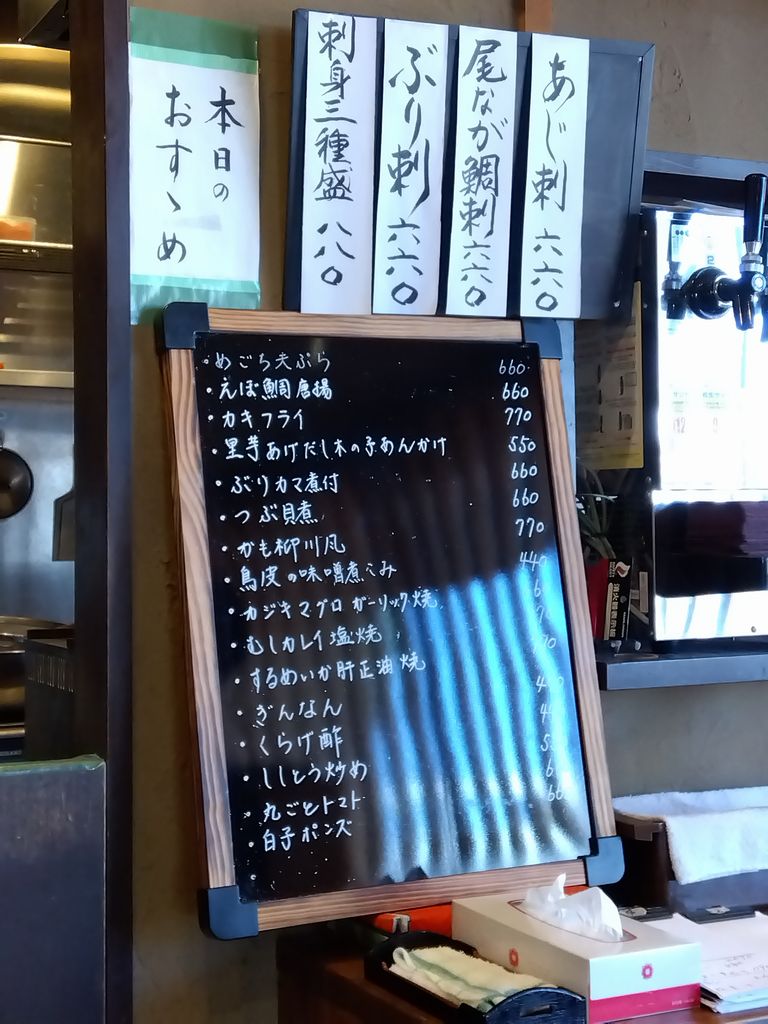 本日の
おすゝめ
あじ刺 六六〇
尾なが鯛刺 六六〇
ぶり刺 六六〇
刺身三種盛 八八〇
・めごち天ぷら 660
・えぼ鯛唐揚 660
・カキフライ 770
・里芋あげだし木の子あんかけ 550
・ぶりカマ煮付 660
・つぶ貝煮 660
・かも柳川風 770
・鳥皮の味噌煮こみ 440
・カジキマグロガーリック焼
・むしカレイ塩焼
・するめいか肝正油焼
・ぎんなん
・くらげ酢
・ししとう炒め
・丸ごとトマト
・白子ポンズ